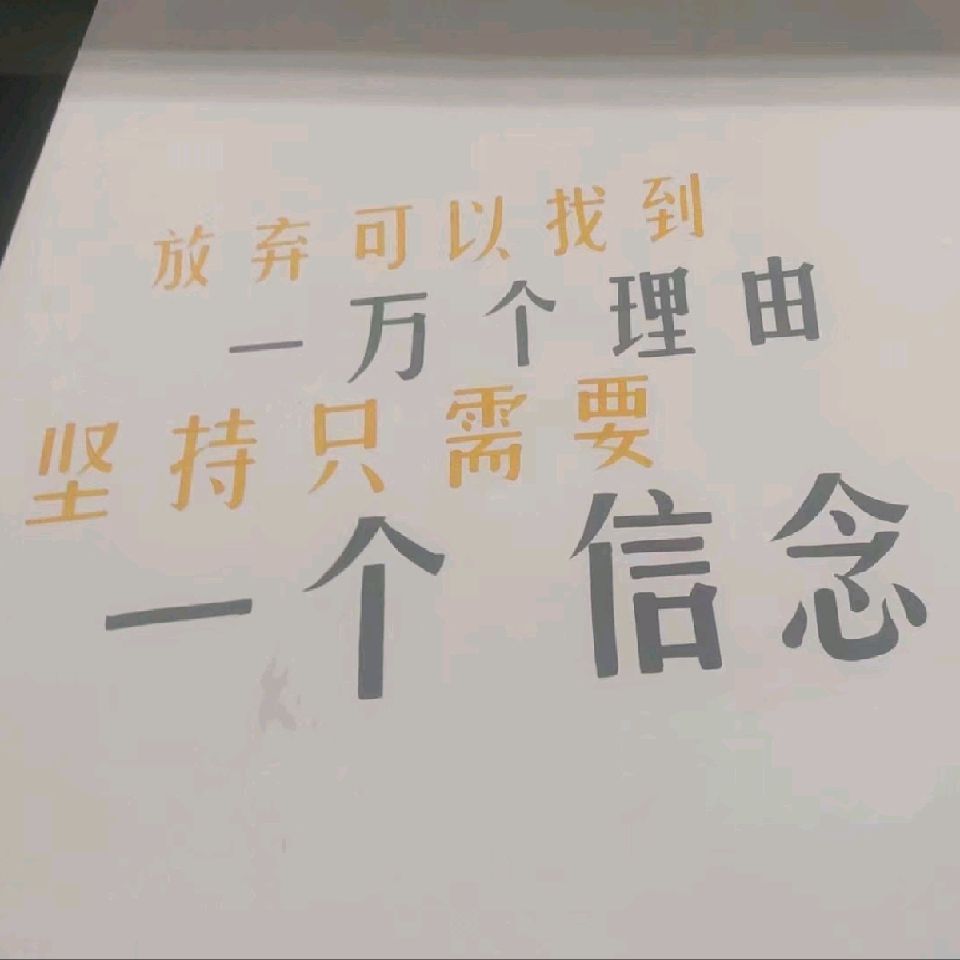 放弃可以找到
一万个理由
坚持只需要
一个信念